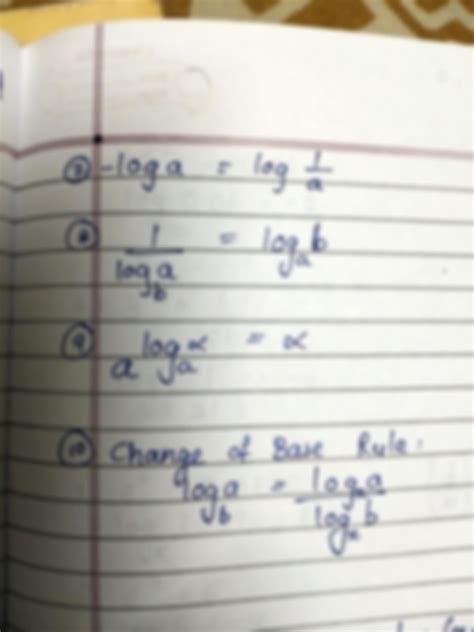 ⑦ -log a = log 1/a
⑧ 1/log_b a = log_a b
⑨ a^(log_a α) = α
⑩ Change of Base Rule:
log_b a = log_x a / log_x b